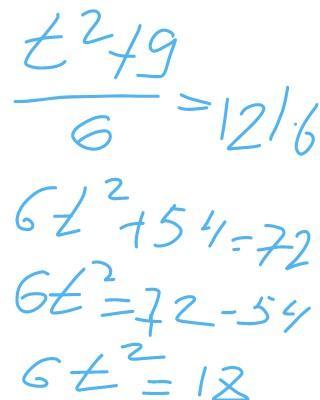 t²+9
6
=12/·6
6t²+54=72
6t²=72-54
6t²=18